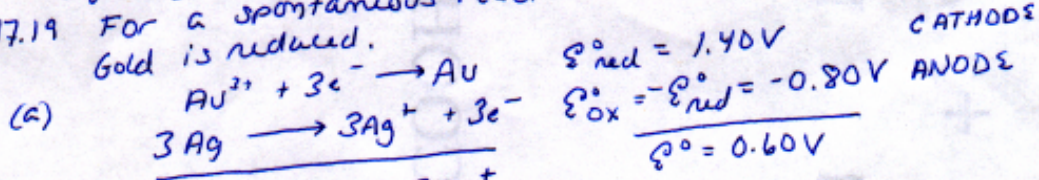 17.19 For a spontaneous
Gold is reduced.
(a) Au³⁺ + 3e⁻ → Au ℰ°red = 1.40V CATHODE
3Ag → 3Ag⁺ + 3e⁻ ℰ°ox = -ℰ°red = -0.80V ANODE
ℰ° = 0.60V